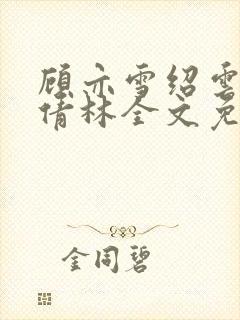 顾亦雪绍雲
倩林全文免
金同碧